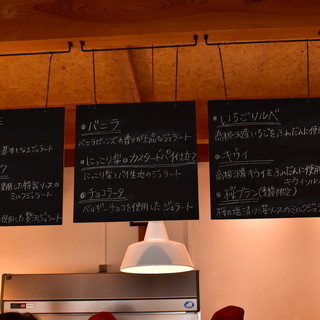 基本となるジェラート
使用した特製ソースの
ミルクジェラート
使用した贅沢ジェラート
バニラ
バニラビーンズの香りが上品なジェラート
にっこり梨のカスタードパイ仕立て
にっこり梨とパイ生地のジェラート
チョコラータ
ベルギーチョコを使用したジェラート
いちごソルベ
高根沢産いちごをふんだんに使用
キウイ
高根沢産キウイをふんだんに使用
キウイソルベ
桜プラン(季節限定)
桜の塩漬けと苺ソースのミルクジェ